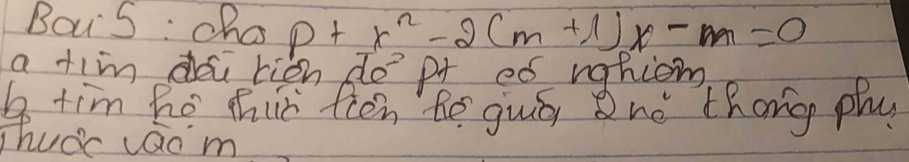 Bài 5: cho pt x² - 2(m+1)x - m = 0
a tìm điều kiện để pt có nghiệm
b tìm hệ thức liên hệ giữa 2 n⁰ không phụ
thuộc vào m